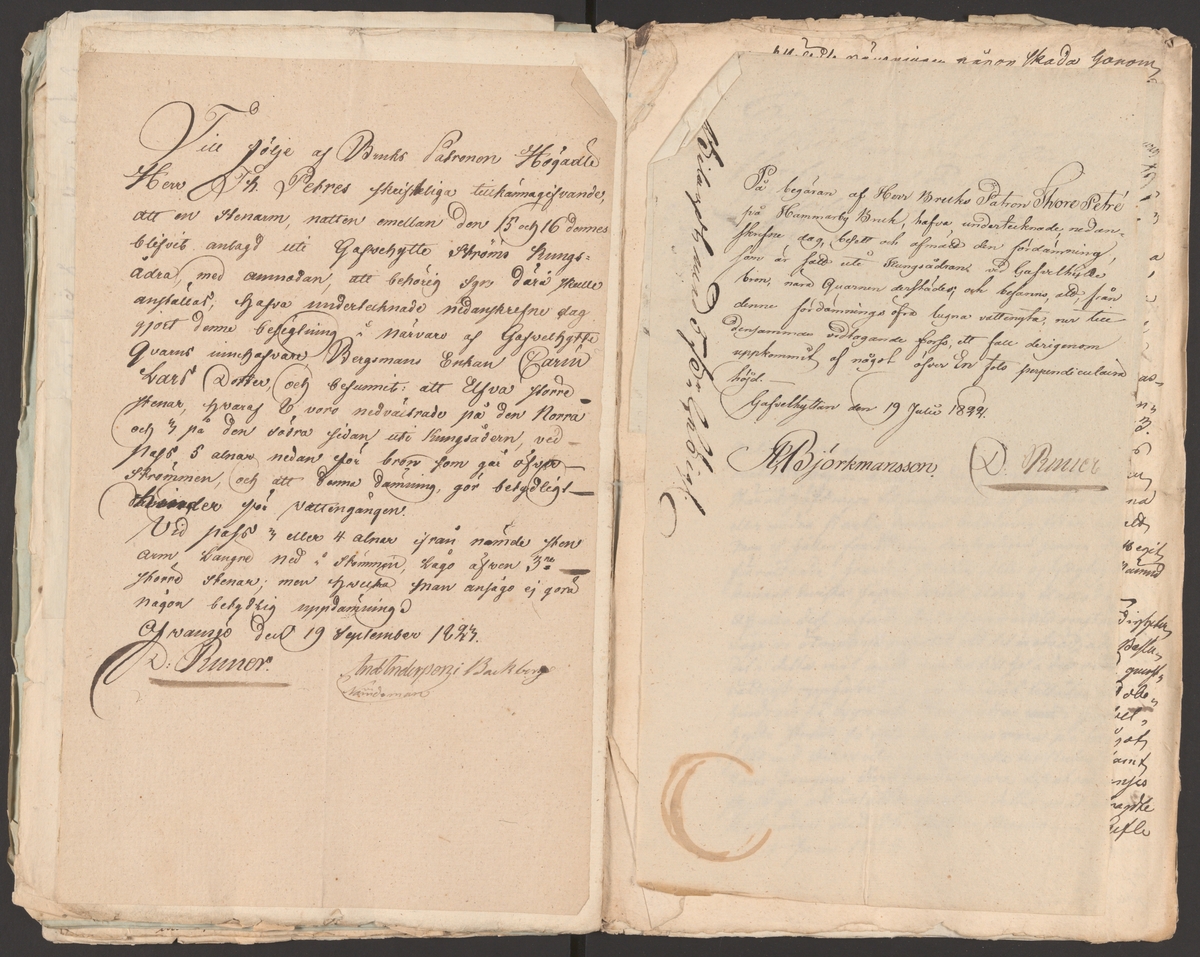 Till följe af Bruks Patronen Högädle
Herr Th. Petres skrifteliga tillkännagifvande,
att en Stenarm, natten emellan den 15 och 16 dennes
blifvit anlagd uti Gafvelhytte Ströms Kungs=
ådra, med anmodan, att behörig syn därå skulle
anställas; Hafva undertecknade nedanskrefne dag
gjort denne besigtning i närvaro af Gafvelhytte
Qvarns innehafvare Bergsmans Enkan Carin
Lars Dotter, och befunnit: att Elfva större
stenar, hvaraf 8 voro nedvältrade på den Norra
och 3 på den södra sidan uti Kungsådern, ved
pass 5 alnar nedan för bron som går öfver
Strömmen, och att denna dämning, gör betydligt
hinder för vattengången.
Ved pass 3 eller 4 alnar ifrån nämde sten
arm längre ned i Strömmen, Lågo äfven 3ne
större stenar; men hvilka man ansågo ej göra
någon betydlig uppdämning
Ofvansjö den 19 September 1822.
D: Runer. And Anderson i Backberg
Nämdeman
någon skada genom
På begäran af Herr Bruks Patron Thore Petré
på Hammarby Bruk, hafva undertecknade, nedan-
skrifne dag, besett och afmätt den fördämning,
som är satt uti Kungsådran, vid Gafvelhytte
bron, nära Qvarnen derstädes, och befanns, att från
denne fördämnings öfra lugna vattenyta, ner till
densammas vidtagande forss, ett fall derigenom
uppkommit af något öfver En fots perpendiculaire
höjd.
Gafvelhyttan den 19 Julii 1822.
Björkmansson. D. Runer